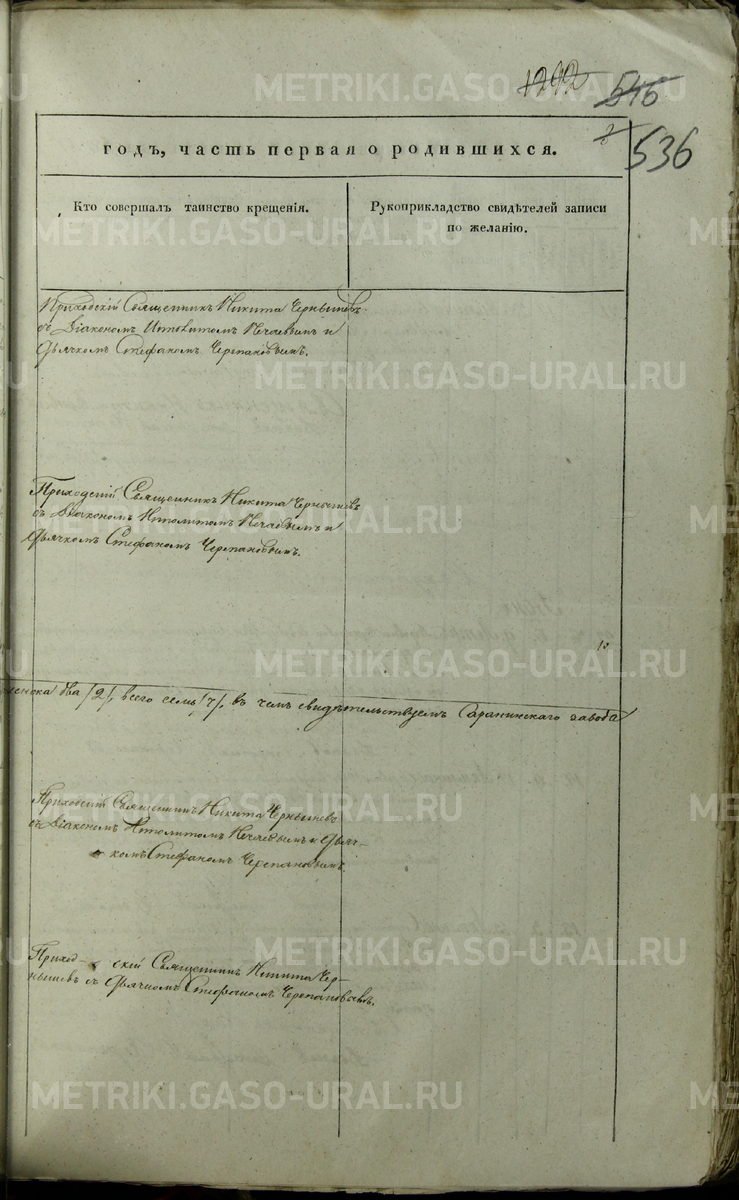 1292 546
536
годъ, часть первая о родившихся.
Кто совершалъ таинство крещенія.
Рукоприкладство свидѣтелей записи
по желанію.
Приходскій Священникъ Никита Чернышевъ
съ Діакономъ Иполитомъ Нечаевымъ и
дьячкомъ Стефаномъ Черепановымъ.
Приходскій Священникъ Никита Чернышевъ
съ Діакономъ Иполитомъ Нечаевымъ и
дьячкомъ Стефаномъ Черепановымъ.
женска два /2/, всего семь /7/. въ чемъ свидѣтельствуемъ Саранинскаго завода
Приходскій Священникъ Никита Чернышевъ
съ Діакономъ Иполитомъ Нечаевымъ и дьяч-
комъ Стефаномъ Черепановымъ.
Приход- скій Священникъ Никита Чер-
нышевъ съ дьячкомъ Стефаномъ Черепановымъ.
METRIKI.GASO-URAL.RU